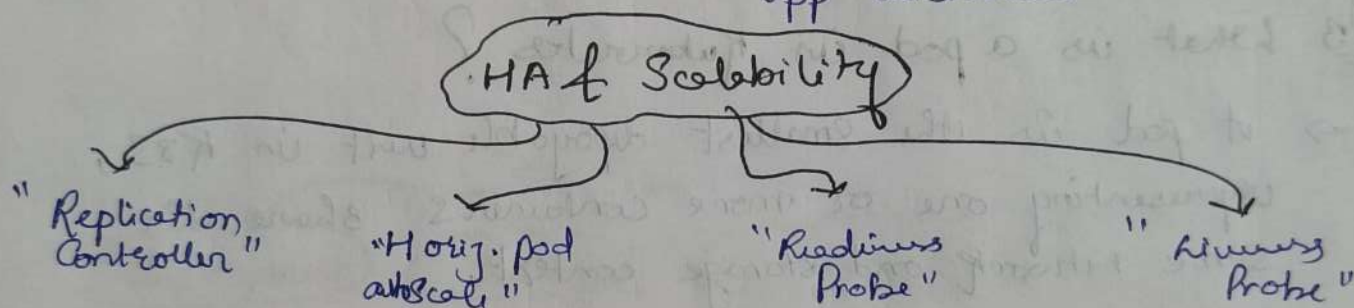 HA & Scalability
"Replication Controller"
"Horiz. pod autoscale"
"Readiness Probe"
"Liveness Probe"